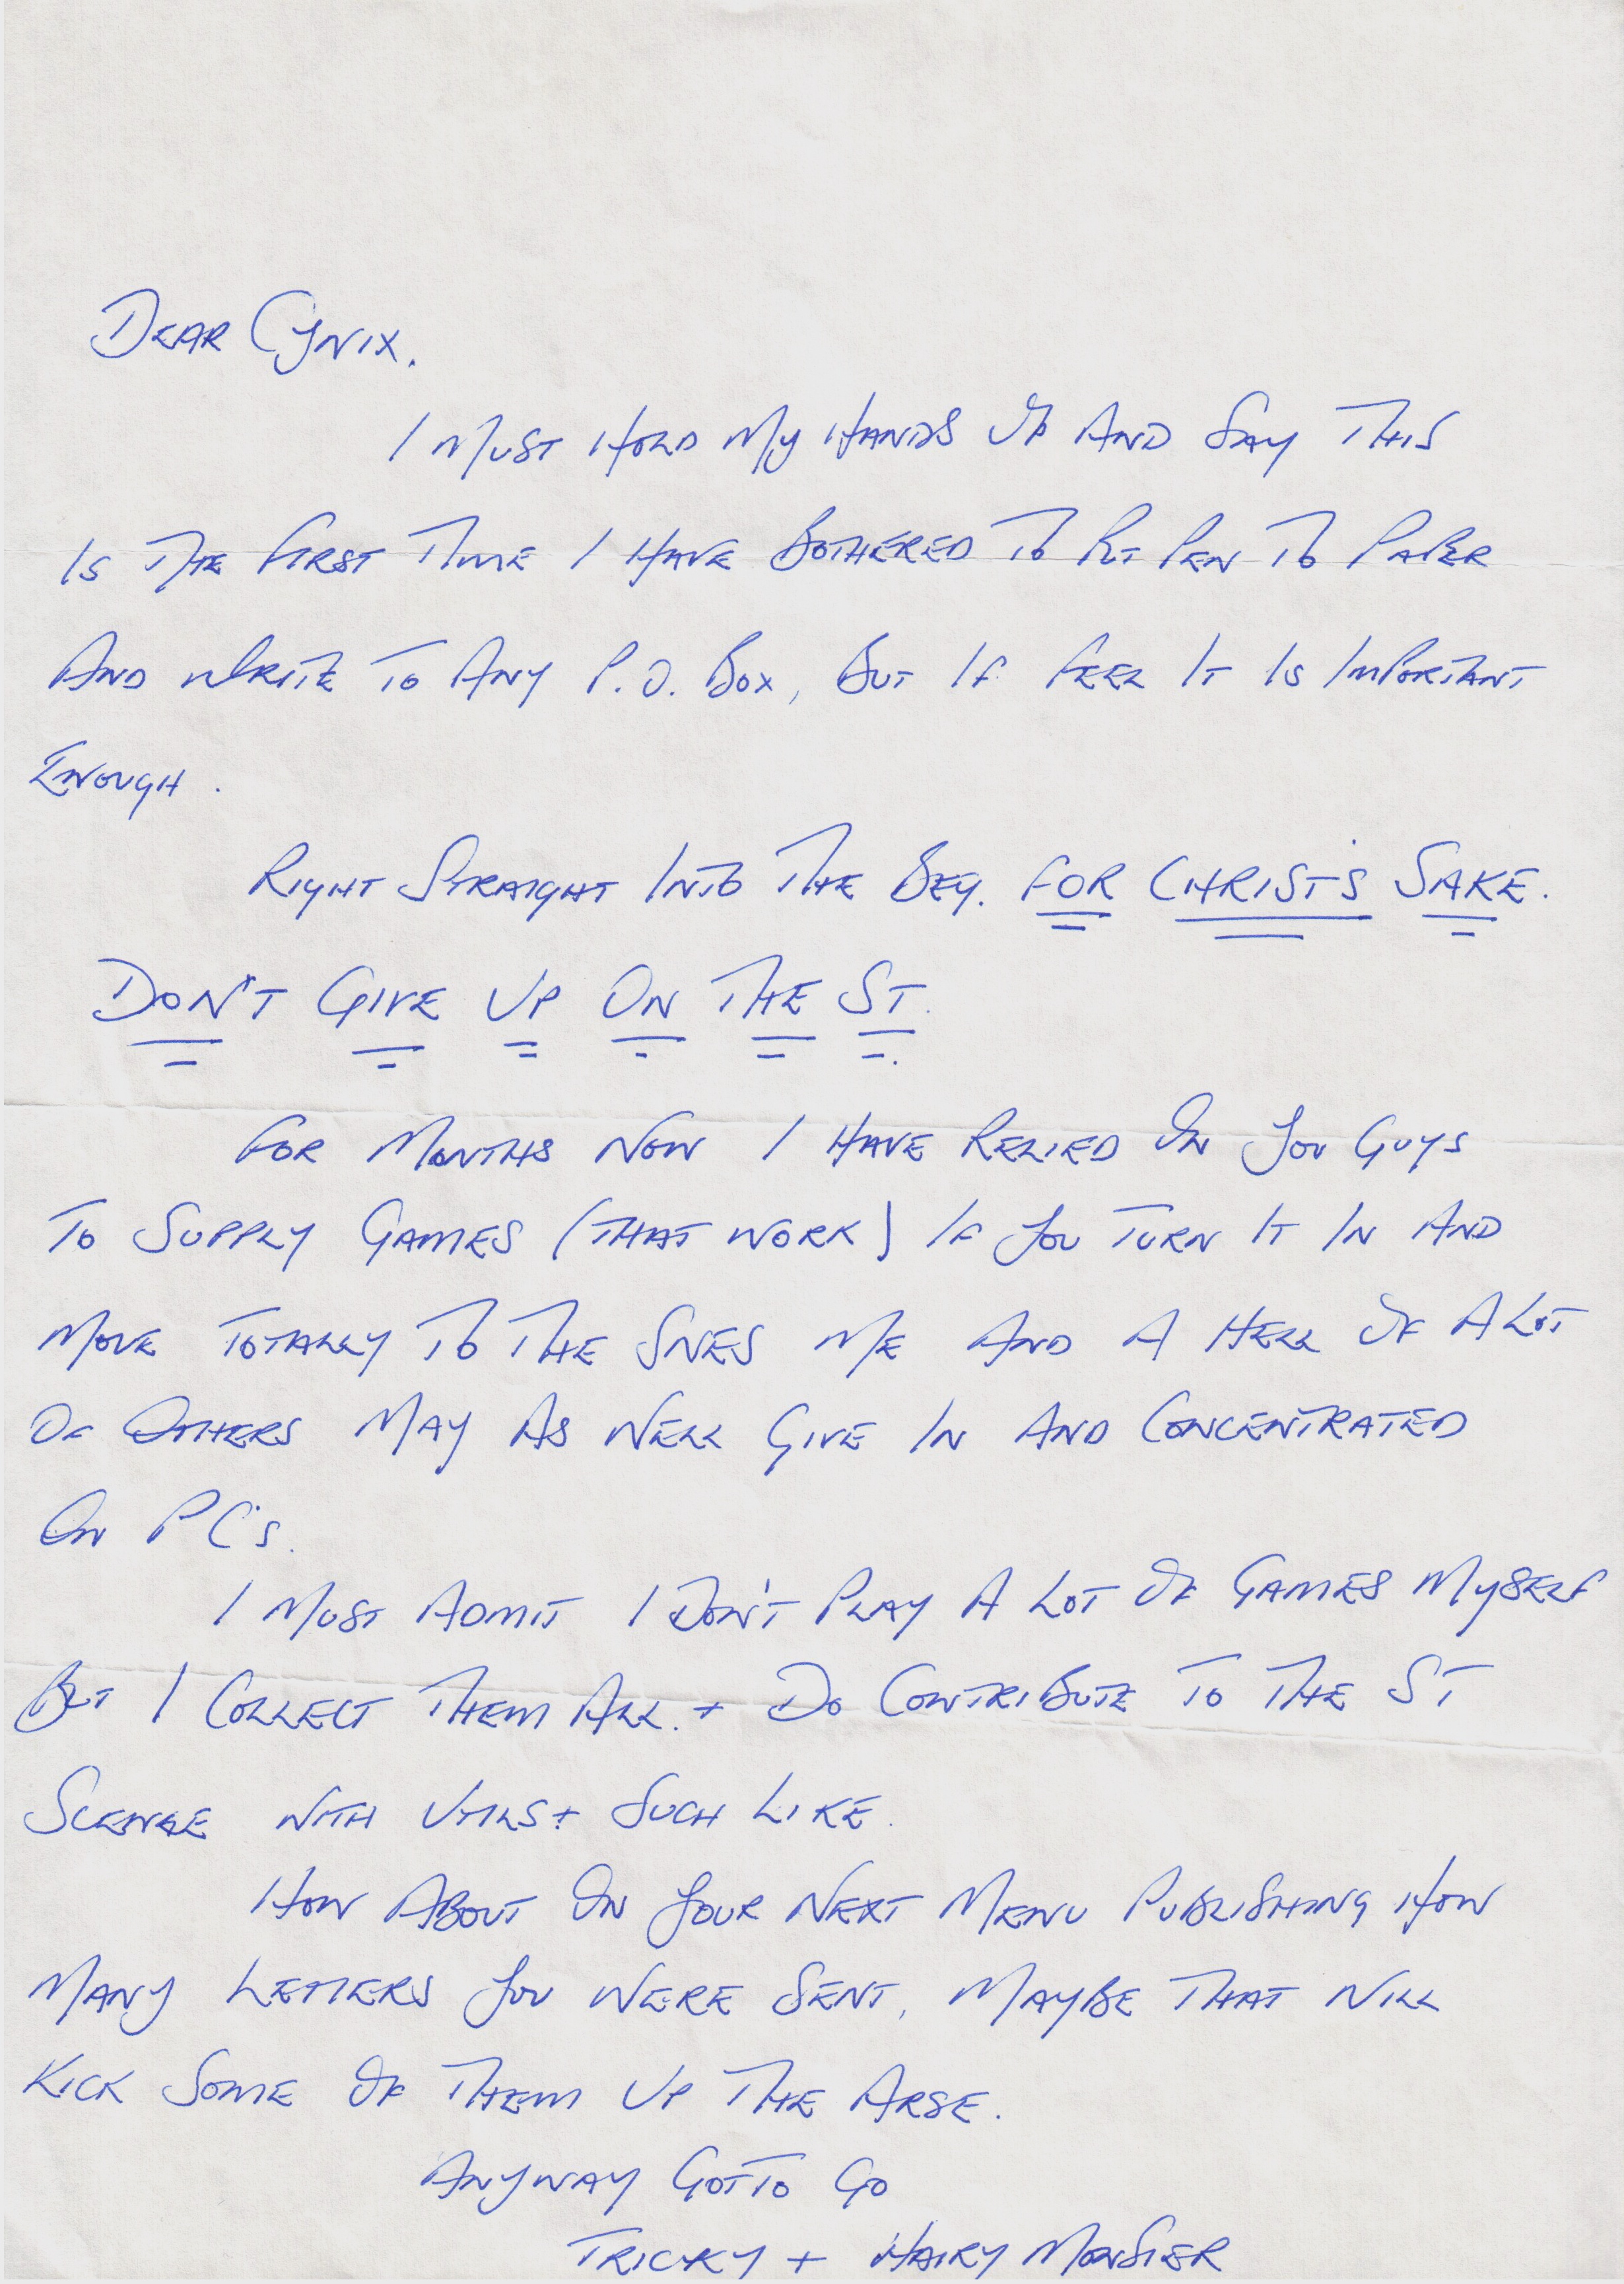 DEAR CYNIX.
I MUST HOLD MY HANDS UP AND SAY THIS
IS THE FIRST TIME I HAVE BOTHERED TO PUT PEN TO PAPER
AND WRITE TO ANY P.O. BOX, BUT IF FEEL IT IS IMPORTANT
ENOUGH.
RIGHT STRAIGHT INTO THE BEG. FOR CHRIST'S SAKE.
DON'T GIVE UP ON THE ST.
FOR MONTHS NOW I HAVE RELIED ON YOU GUYS
TO SUPPLY GAMES (THAT WORK) IF YOU TURN IT IN AND
MOVE TOTALLY TO THE SNES ME AND A HELL OF A LOT
OF OTHERS MAY AS WELL GIVE IN AND CONCENTRATED
ON PC'S.
I MUST ADMIT I DON'T PLAY A LOT OF GAMES MYSELF
BUT I COLLECT THEM ALL. + DO CONTRIBUTE TO THE ST
WITH UTILS + SUCH LIKE.
HOW ABOUT ON YOUR NEXT MENU PUBLISHING HOW
MANY LETTERS YOU WERE SENT, MAYBE THAT WILL
KICK SOME OF THEM UP THE ARSE.
ANYWAY GOT TO GO
TRICKY + HAIRY MONSTER